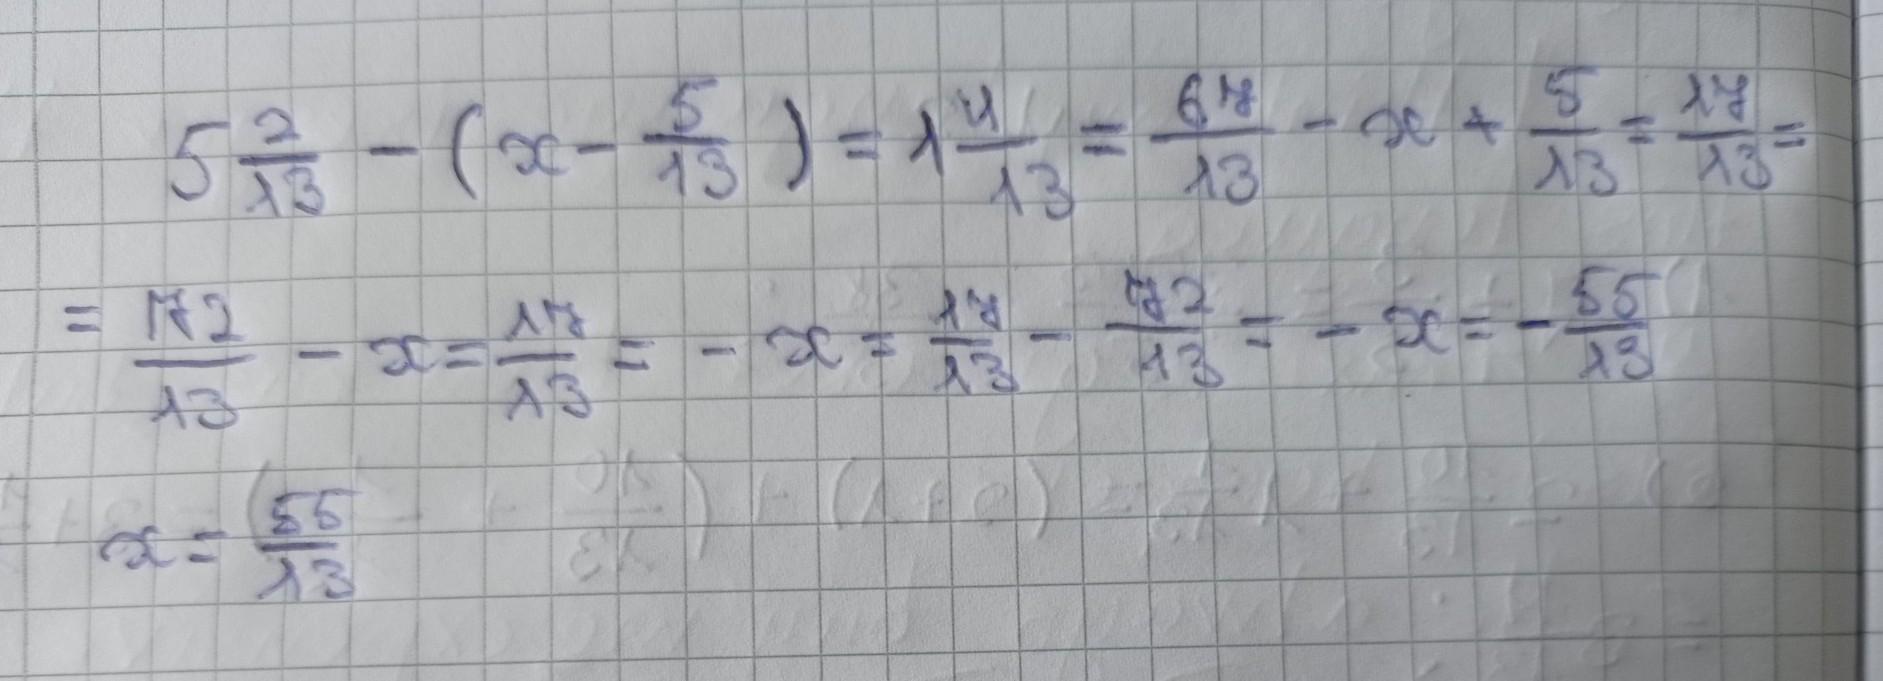 5 2/13 - (x - 5/13) = 1 4/13 = 67/13 - x + 5/13 = 17/13 =
= 72/13 - x = 17/13 = - x = 17/13 - 72/13 = - x = - 55/13
x = 55/13